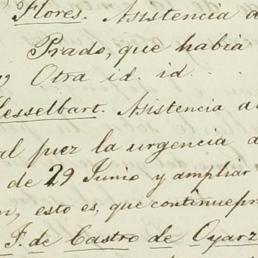 Flores. Asistencia a
Prado, que habia
Otra id. id.
esselbart. Asistencia a
al juez la urgencia a
de 29 Junio y ampliar
n, esto es, que continue pr
F. de Castro de Oyarz